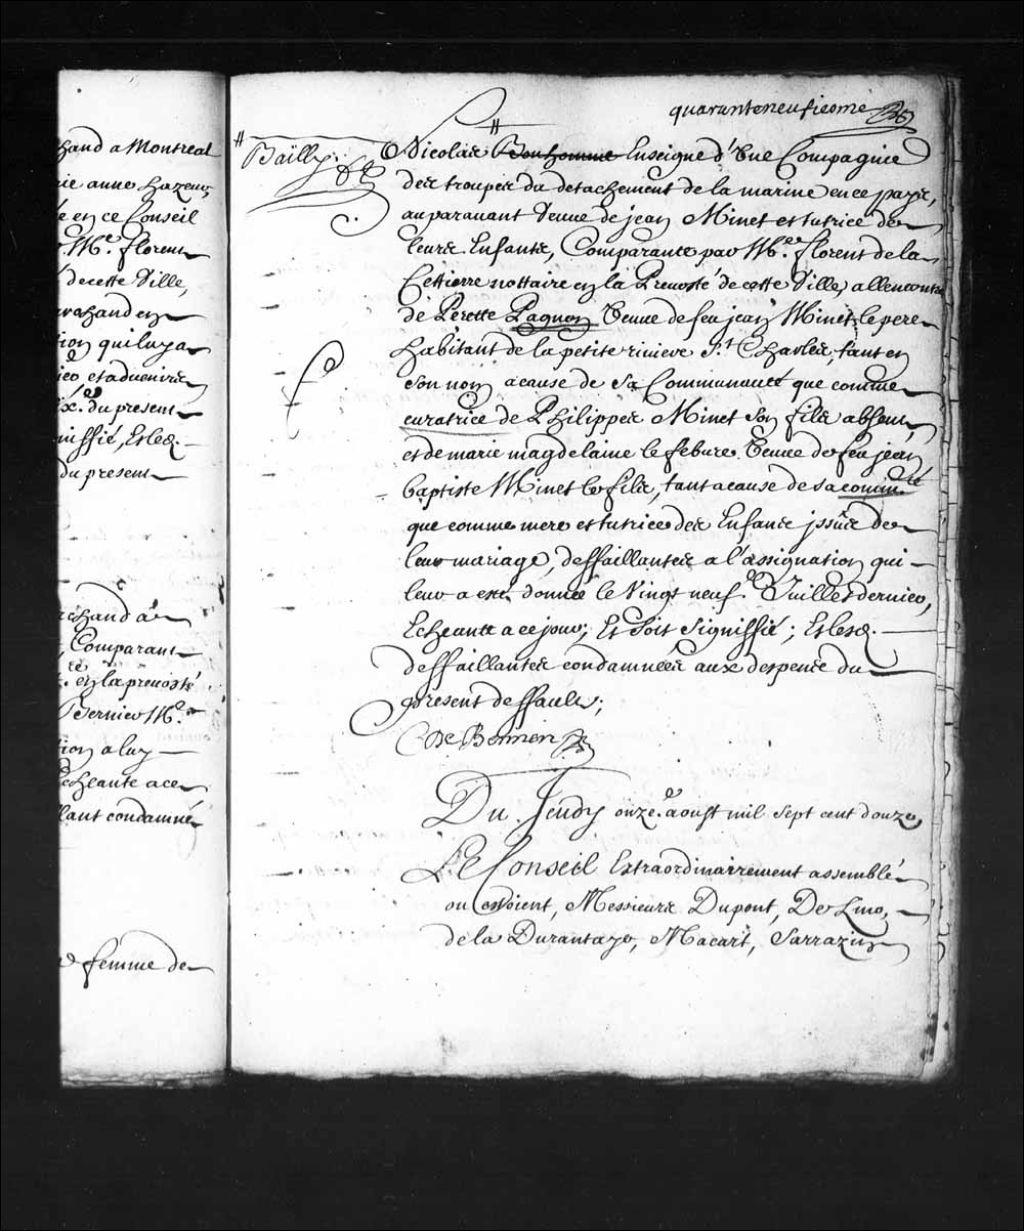 hand a Montreal
rie anne hazeur,
é en ce Conseil
Me. florent
decette Ville,
archand en
tion quiluya
et aduenir
ixe. du present
niffié, Et les d.
du present
rchand à
Comparant
en la preuosté
Bernier Me.
tion a luy
echeante a ce
llant condamné
femme de
quaranteneufieome
# Bailly.
Nicolas # Bonhomme Enseigne d'Vne Compagnie
des troupes du detachement de la marine ence pays,
auparauant Veuue de jean Minet et tutrice de
leurs Enfants, Comparante par Me. florent de la
Cettiere nottaire en la Preuosté de cette Ville, allencontre
de Perette Pagnon Veuue de feu jean Minet le pere
habitant de la petite riviere St. Charles, tant en
son nom acause de Sa Communauté que comme
curatrice de Philippes Minet son fils absent,
et de marie magdelaine lefebure Veuue de feu jean
baptiste Minet le fils, tant a cause de sa commté
que comme mere et tutrice des Enfants jssus de
leur mariage, deffaillantes a l'assignation qui
leur a esté donnée le Vingt neufe. Juillet dernier,
Echeante a ce jour; Et soit signiffié; Et les d.
deffaillantes condamnées aux despens du
present deffault;
De Bermen
Du Jeudy onze. aoust mil sept cent douze,
LE Conseil Extraordinairement assemblé
ou estoient, Messieurs Dupont, De Lino,
de la Durantaye, Macart, Sarrazin